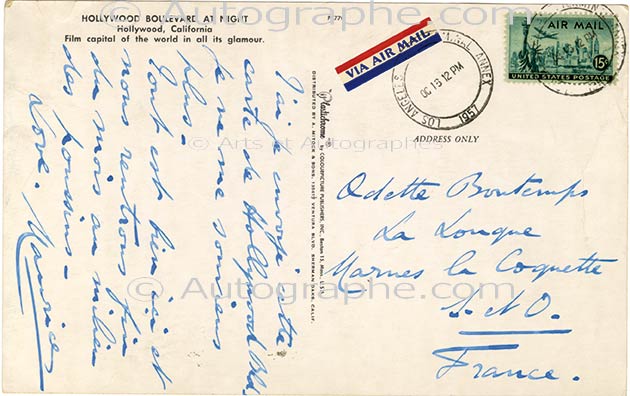 HOLLYWOOD BOULEVARD AT NIGHT
Hollywood, California
Film capital of the world in all its glamour.
J'ai je envoyé cette
carte de Hollywood Bld.
je ne me souviens
plus -
Tout est bien ici et
nous rentrons fin
du mois au milieu
des poussins -
Love. Maurice
Plastichrome
by COLOURPICTURE PUBLISHERS, INC., Boston 15, Mass., U.S.A.
DISTRIBUTED BY A. MITOCK & SONS, VENTURA BLVD., SHERMAN OAKS, CALIF.
VIA AIR MAIL
LOS ANGELES
ANNEX
OC 16 12 PM
1957
AIR MAIL
15¢
UNITED STATES POSTAGE
ADDRESS ONLY
Odette Boutemps
La Louque
Marnes la Coquette
S. et O.
France.
© Autographe.com
© Arts et Autographes
© Autographe.com